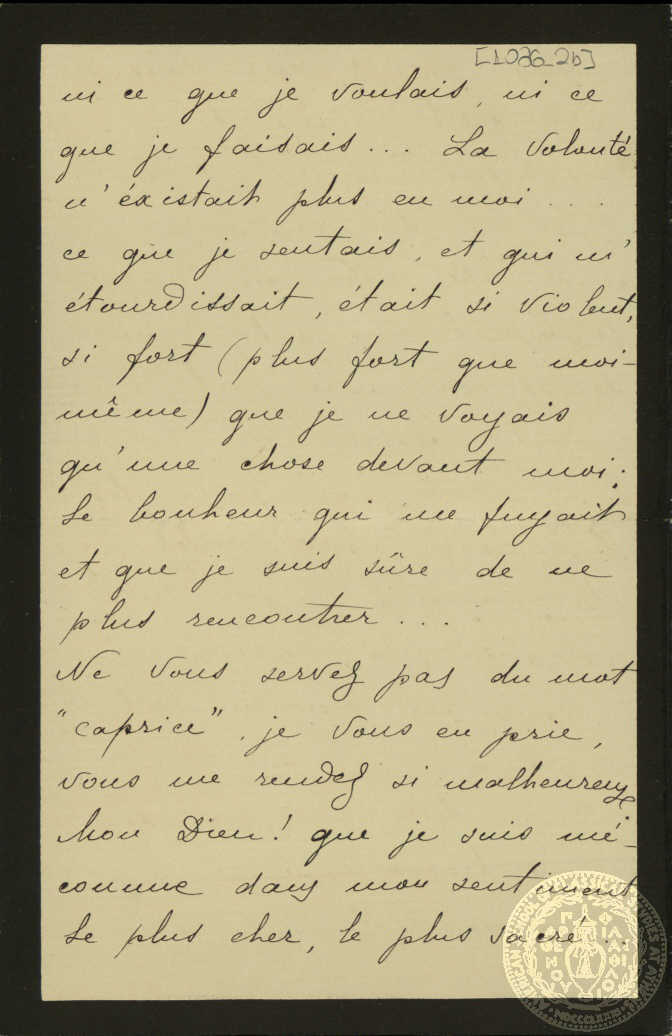 [1036_2b]
ni ce que je voulais, ni ce
que je faisais... La volonté
n'éxistait plus en moi....
ce que je sentais, et qui m'
étourdissait, était si violent,
si fort (plus fort que moi-
même) que je ne voyais
qu'une chose devant moi:
Le bonheur qui me fuyait
et que je suis sûre de ne
plus rencontrer...
Ne vous servez pas du mot
"caprice", je vous en prie,
vous me rendez si malheureuse
Mon Dieu! que je suis mé-
connue dans mon sentiment
le plus cher, le plus sacré...
AMERICAN SCHOOL OF CLASSICAL STUDIES AT ATHENS
ΠΑΡΘΕΝΟΥ ΦΙΛΑΣ ΦΙΛΟΙ
MDCCCLXXXI